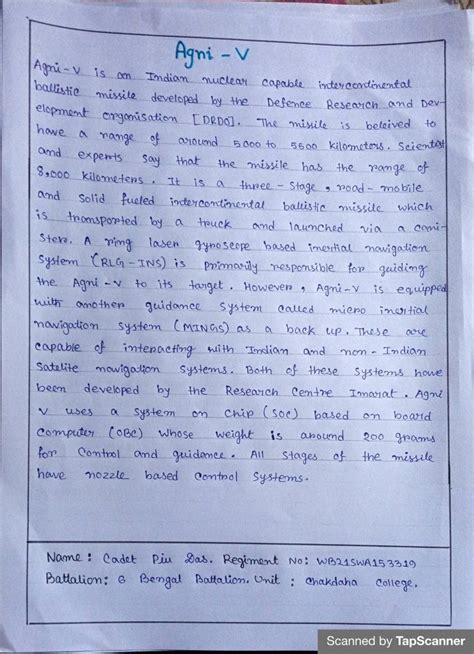 Agni - V
Agni-V is an Indian nuclear capable intercontinental
ballistic missile developed by the Defence Research and Dev-
elopment organisation [DRDO]. The missile is beleived to
have a range of around 5000 to 5500 kilometers. Scientist
and experts say that the missile has the range of
8,000 kilometers. It is a three-stage, road-mobile
and solid fueled intercontinental ballistic missile which
is transported by a truck and launched via a cani-
ster. A ring laser gyroscope based inertial navigation
system (RLG-INS) is primarily responsible for guiding
the Agni-V to its target. However, Agni-V is equipped
with another guidance system called micro inertial
navigation system (MINGS) as a back up. These are
capable of interacting with Indian and non-Indian
Satelite navigation systems. Both of these systems have
been developed by the Research Centre Imarat. Agni
V uses a system on chip (SOC) based on board
computer (OBC) whose weight is around 200 grams
for control and guidance. All stages of the missile
have nozzle based control systems.
Name: Cadet Piu Das. Regiment No: WB21SWA153319
Battalion: 6 Bengal Battalion. Unit: Chakdaha College.
Scanned by TapScanner